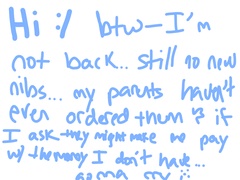 Hi :/ btw - I'm
not back... still no new
nibs... my parents haven't
even ordered them & if
I ask they might make me pay
w/ the money I don't have...